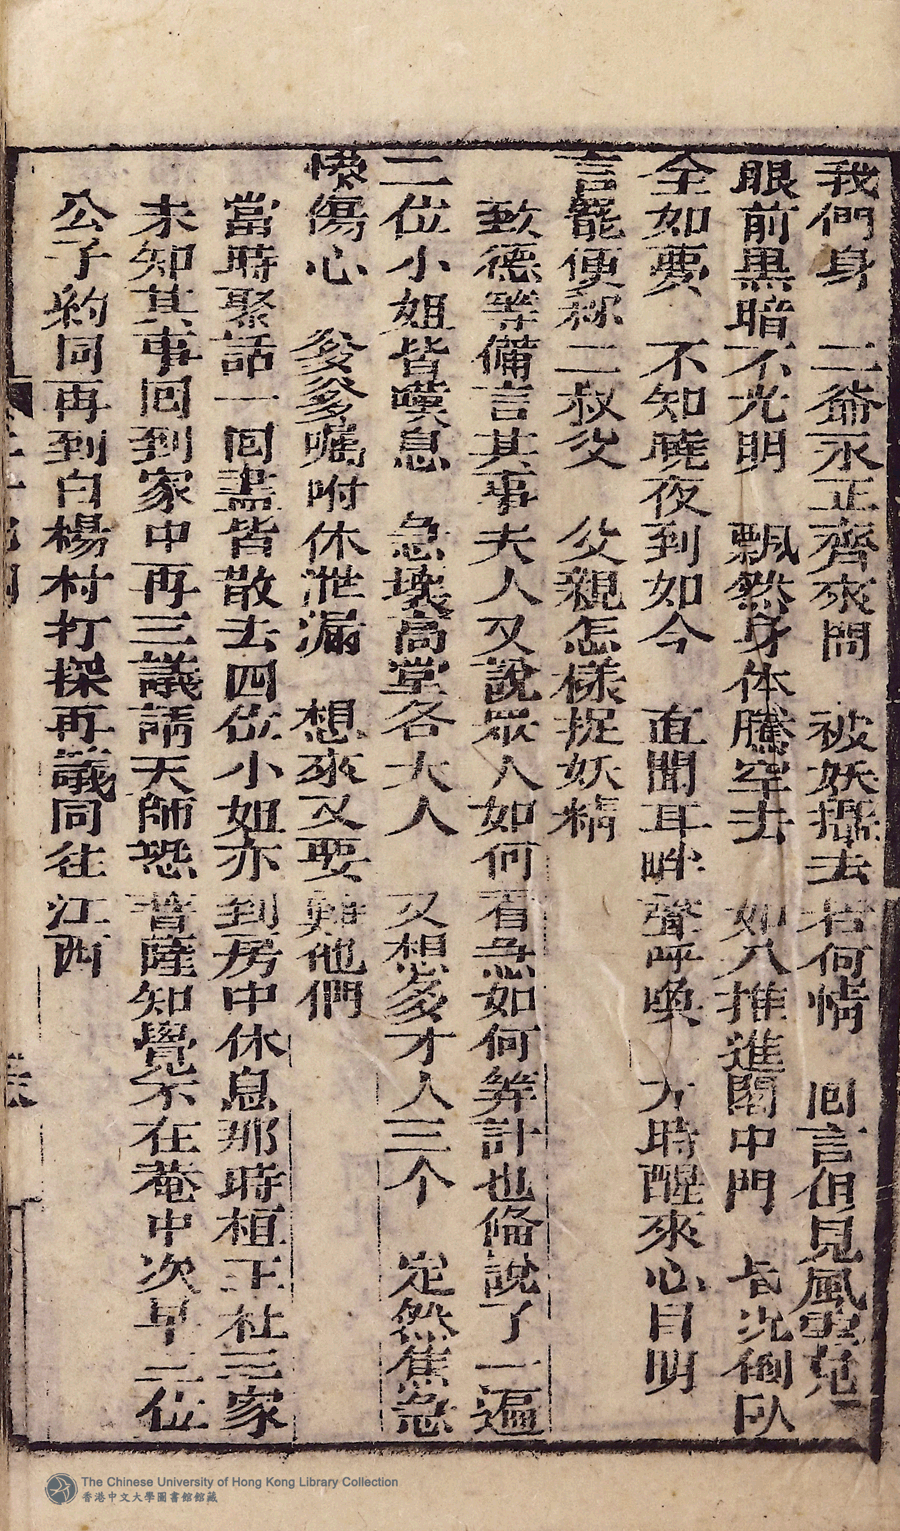 我們身　二爺永正齊來問　被妖攝去若何情　回言但見風雲荒
眼前黑暗不光明　飄然身体騰空去　如人推進閣中門　昏沉倒臥
全如夢　不知曉夜到如今　直聞耳畔聲呼喚　才時醒來心目明
言罷便称二叔父　父親怎樣捉妖精
致德等備言其事夫人又說眾人如何着急如何筭計也俻說了一遍
二位小姐皆嘆息　急壞高堂各大人　又想多才人三个　定然焦急
慘傷心　爹爹囑咐休泄漏　想來又要難他們
當時聚話一囬盡皆散去四位小姐亦到房中休息那時桓王杜三家
未知其事囬到家中再三議請天師恐菩薩知覺不在菴中次早二位
公子約同再到白楊村打探再議同往江西
The Chinese University of Hong Kong Library Collection
香港中文大學圖書館館藏